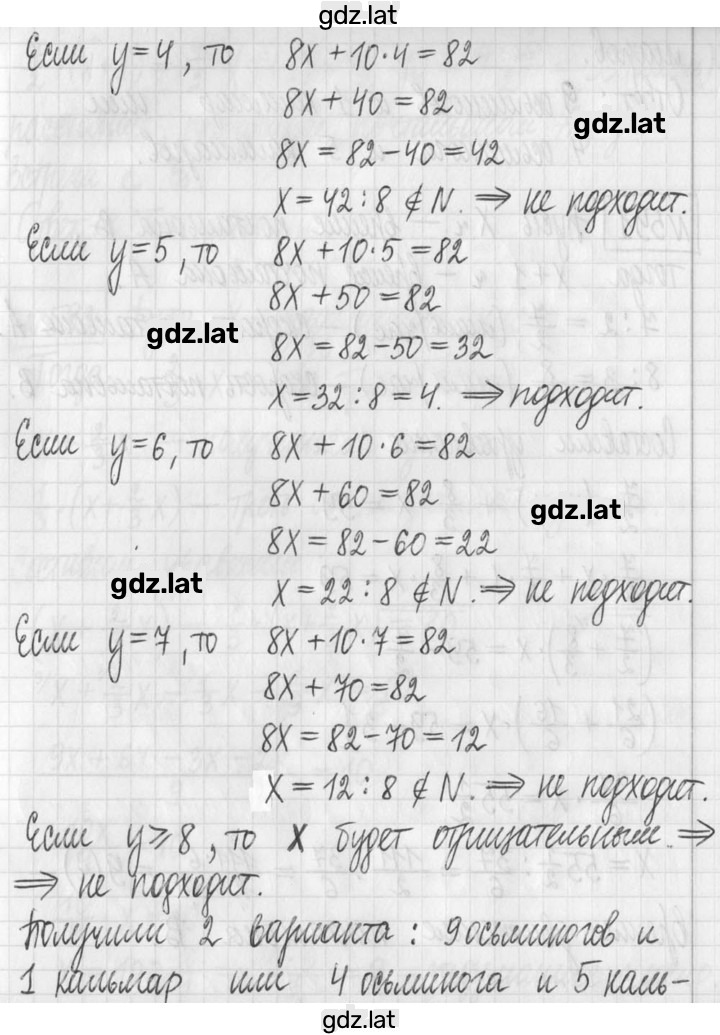 gdz.lat
Если y=4, то 8x+10·4=82
8x+40=82
gdz.lat
8x=82-40=42
x=42:8 ∉ N. ⇒ не подходит.
Если y=5, то 8x+10·5=82
8x+50=82
gdz.lat
8x=82-50=32
x=32:8=4. ⇒ подходит.
Если y=6, то 8x+10·6=82
8x+60=82
gdz.lat
8x=82-60=22
gdz.lat
x=22:8 ∉ N. ⇒ не подходит.
Если y=7, то 8x+10·7=82
8x+70=82
8x=82-70=12
x=12:8 ∉ N. ⇒ не подходит.
Если y⩾8, то x будет отрицательным. ⇒
⇒ не подходит.
Получили 2 варианта: 9 осьминогов и
1 кальмар или 4 осьминога и 5 каль-
gdz.lat